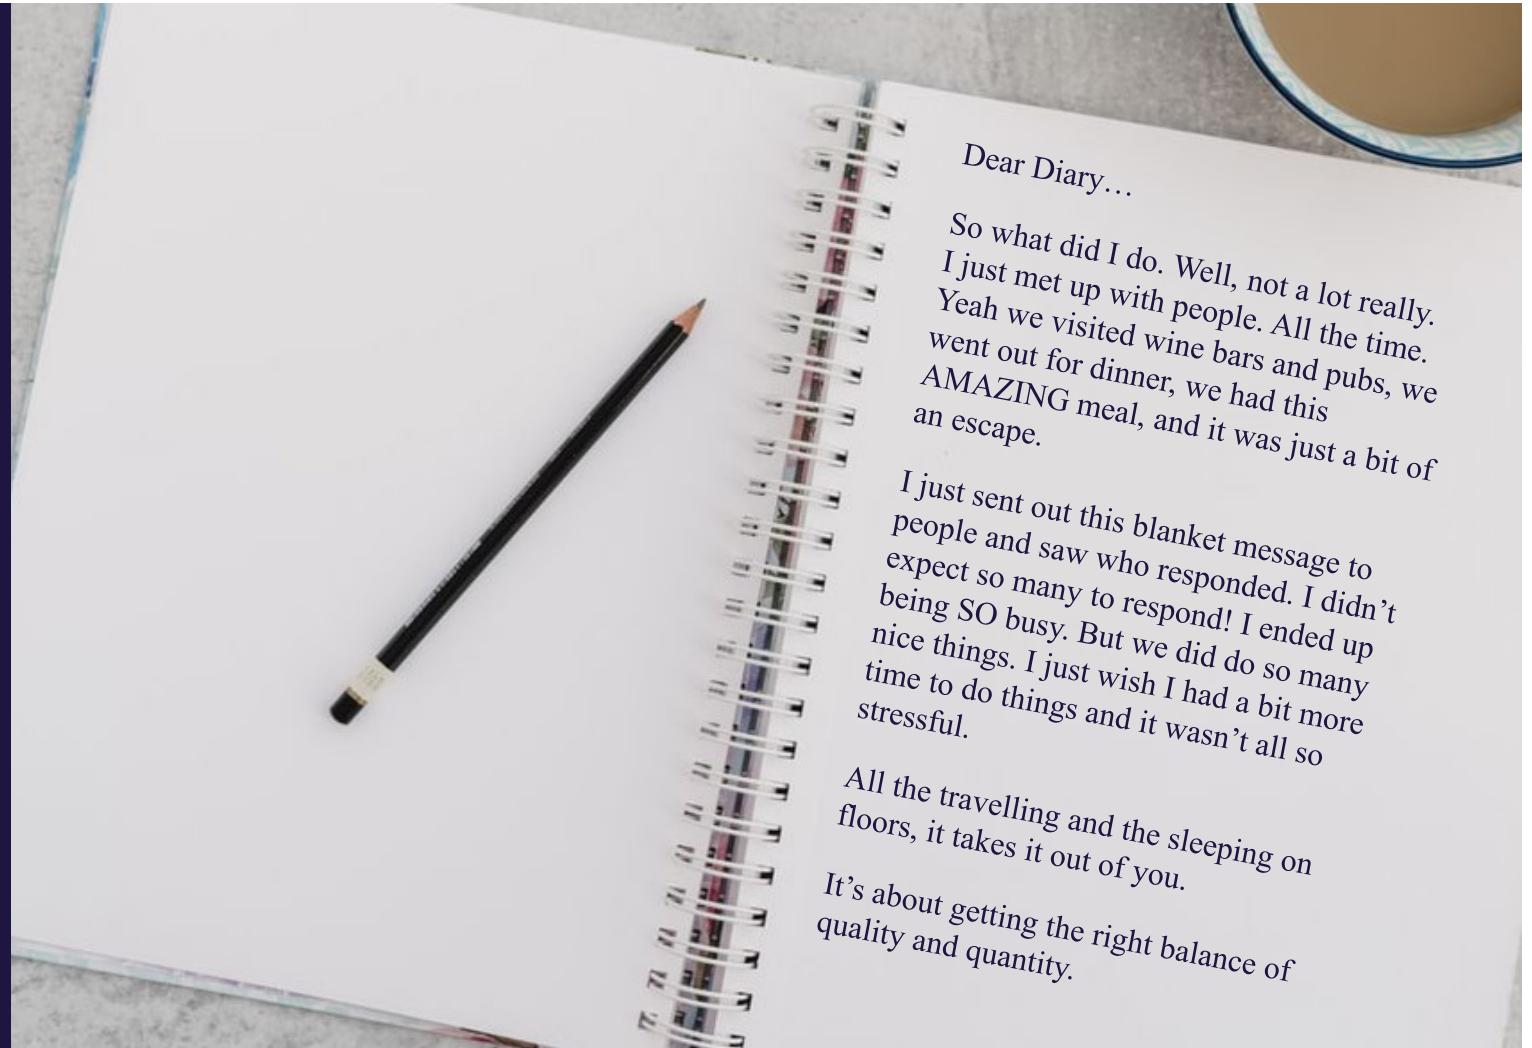 Dear Diary…
So what did I do. Well, not a lot really.
I just met up with people. All the time.
Yeah we visited wine bars and pubs, we
went out for dinner, we had this
AMAZING meal, and it was just a bit of
an escape.
I just sent out this blanket message to
people and saw who responded. I didn’t
expect so many to respond! I ended up
being SO busy. But we did do so many
nice things. I just wish I had a bit more
time to do things and it wasn’t all so
stressful.
All the travelling and the sleeping on
floors, it takes it out of you.
It’s about getting the right balance of
quality and quantity.